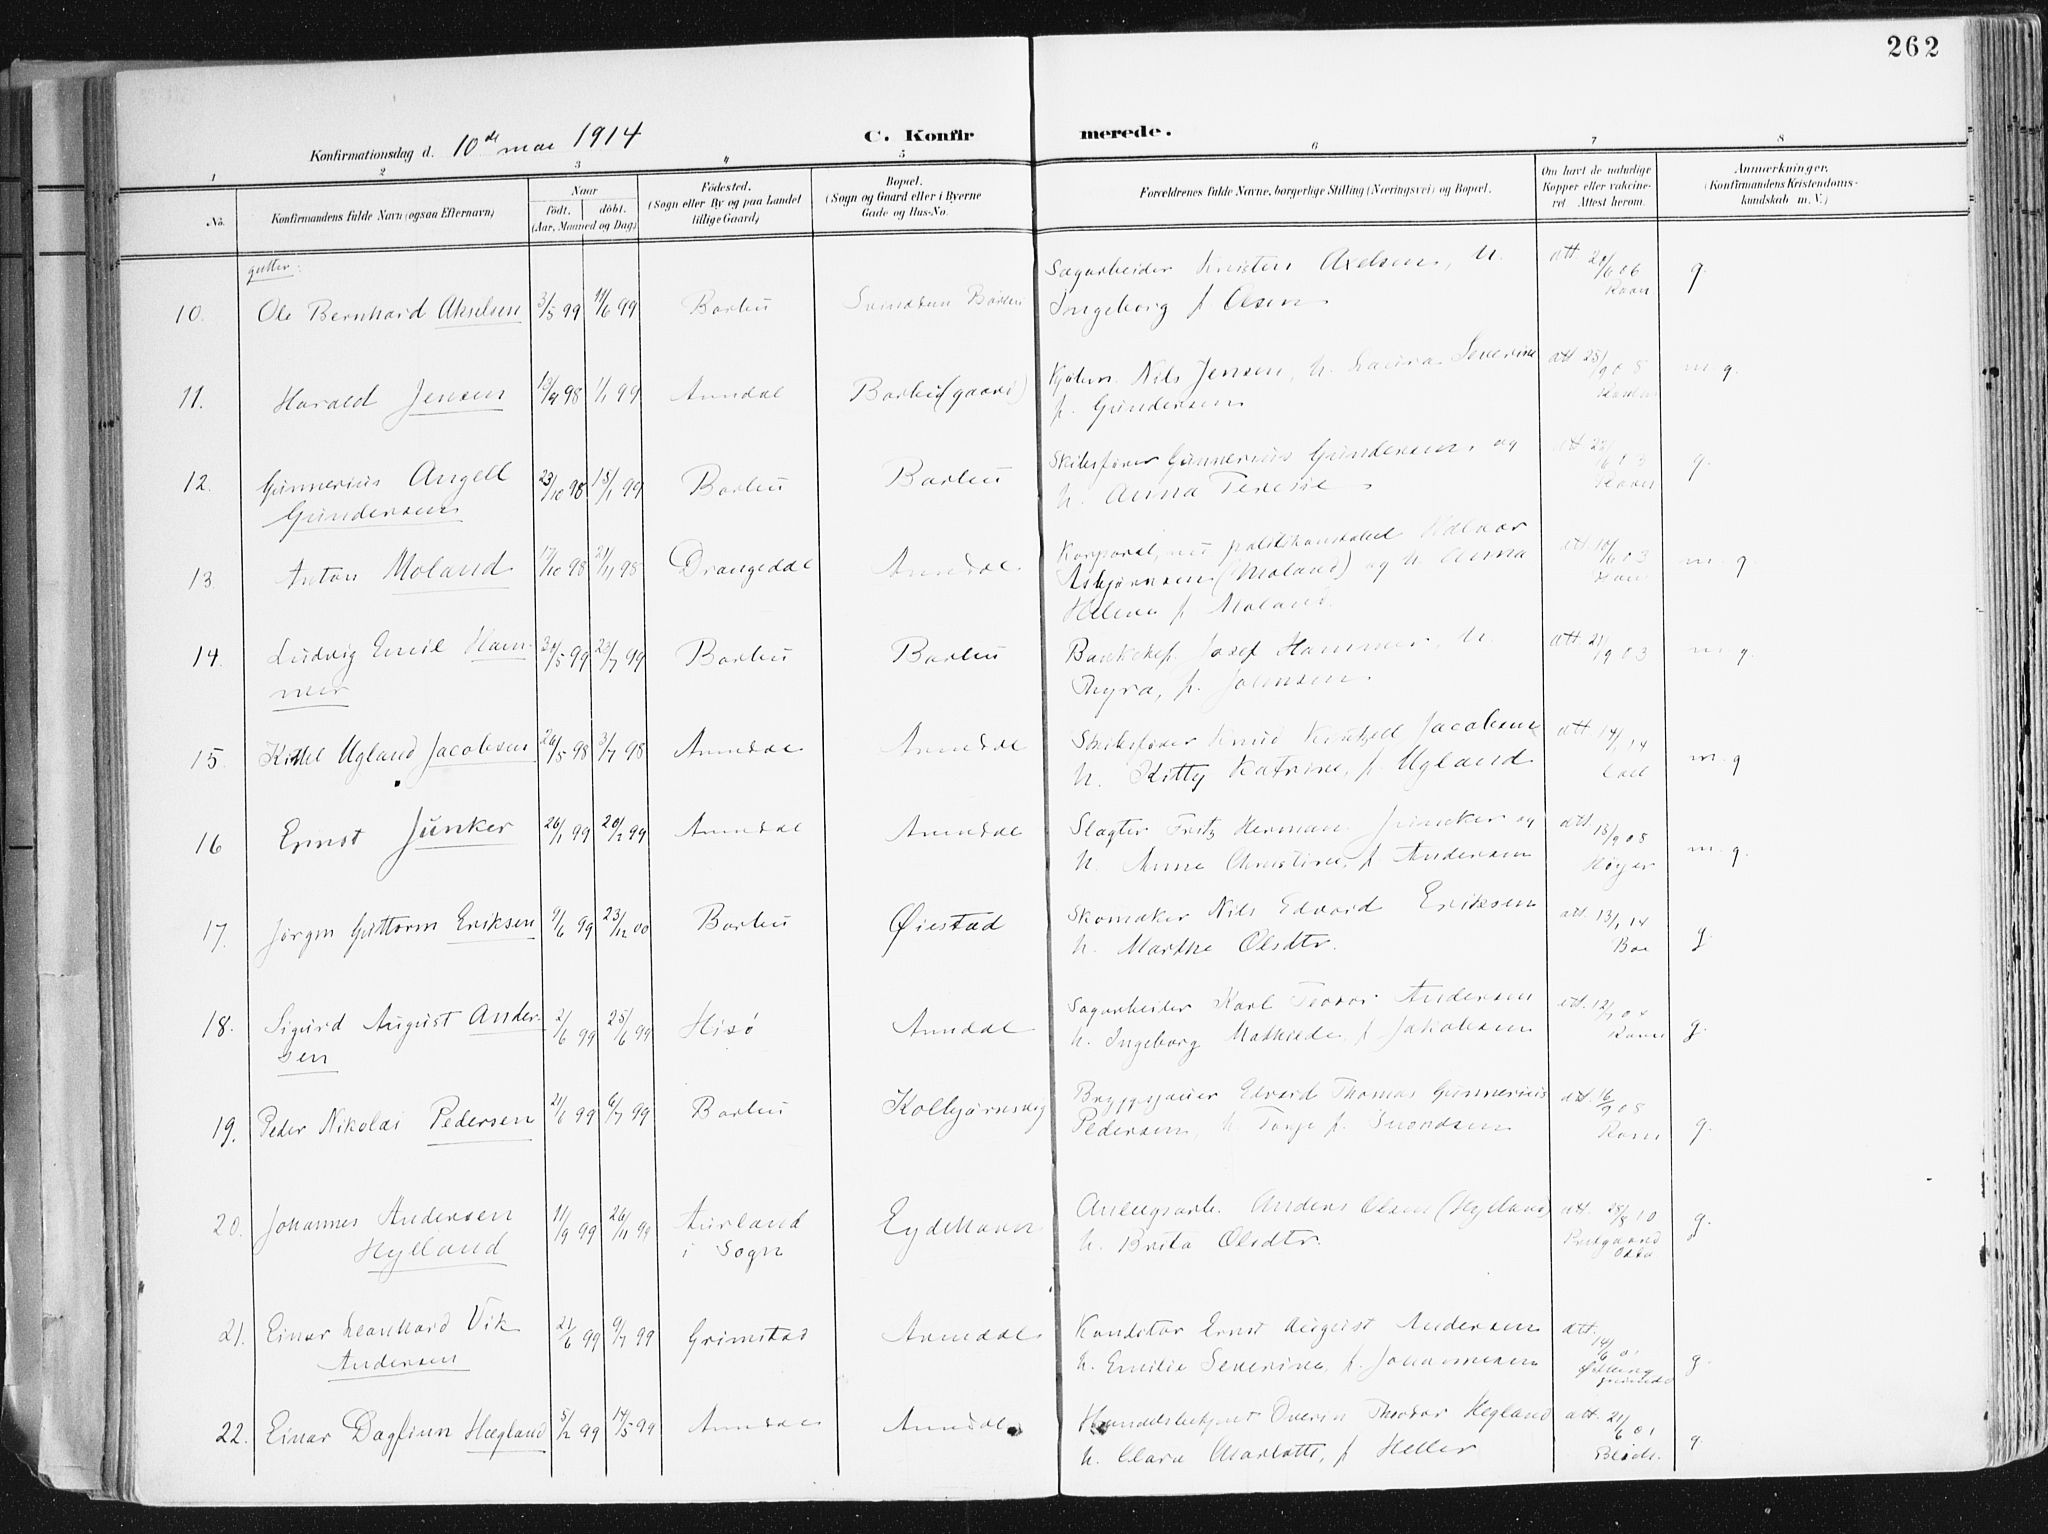 262
Konfirmationsdag d. 10de mai 1914
C. Konfirmerede.
1 2 3 4 5 6 7 8
No.
Konfirmandens fulde Navn (ogsaa Efternavn)
Naar
født. døbt.
(Aar, Maaned og Dag)
Fødested.
(Sogn eller By og paa Landet
tillige Gaard)
Bopæl.
(Sogn og Gaard eller i Byerne
Gade og Hus-No.
Forældrenes fulde Navne, borgerlige Stilling (Næringsvei) og Bopæl.
Om havt de naturlige
Kopper eller vakcine-
ret Attest herom.
Anmerkninger.
(Konfirmandens Kristendoms-
kundskab m. V.)
gutter:
10. Ole Bernhard Akselsen 3/5 99 11/6 99 Barbu Barbu
Sagarbeider Kristen Axelsen, h.
Ingeborg f. Olsen
att. 20/6 06
g.
11. Harald Jensen 1/1 99 Arendal Barbu (gaard)
Nils Jensen, h. Laura Severine
f. Gundersen
att
m. g.
12. Gunnerius Angell
Gundersen 23/10 98 15/1 99 Barbu Barbu
Skibsfører Gunnerius Gundersen og
h. Anna Teresie
att
g.
13. Anton Moland 17/10 98 Drangedal Arendal
Korporal, nu politikonstabel Halvor
Asbjørnsen (Moland) og h. Anna
Helene f. Moland
att.
m. g.
14. Ludvig Emil Ham-
mer 23/7 99 Barbu Barbu
Josef Hammer, h.
Thyra, f. Johnsen
att. 21/9 03
m. g.
15. Kittel Ugland Jacobsen 26/5 98 3/7 98 Arendal Arendal
Skibsfører Knud Jacobsen
h. Kitty Katrine, f. Ugland
att 14/1 14
m. g
16 Ernst Junker 26/1 99 20/2 99 Arendal Arendal
Slagter Fritz Herman Juncker og
h. Anne Christine, f. Andersen
att. 18/9 08
Høyer
m. g.
17. Jørgen Guttorm Eriksen 9/6 99 23/12 00 Barbu Øiestad
Skomaker Nils Edvard Eriksen
h. Marthe Olsdtr.
att. 13/1 14
Boe
g.
18. Sigurd August Ander-
sen 2/6 99 25/6 99 Hisø Arendal
Sagarbeider Karl Teodor Andersen
h. Ingeborg Mathilde, f. Jakobsen
att.
g.
19. Peder Nikolai Pedersen 6/7 99 Barbu Kolbjørnsvig
Bryggesjauer Edvard Thomas Gunnerius
Pedersen, h. Tonje f.
att.
g.
20. Johannes Andersen
Hylland 11/9 99 26/11 99 Aurland
i Sogn Eydehavn
Anlegsarb. Anders Olsen (Hylland)
h. Brita Olsdtr.
att. 28/8 10
g.
21. Einar Leonhard Vik
Andersen 21/6 99 9/7 99 Grimstad Arendal
Konditor Ernst August Andersen
h. Emilie Severine, f. Johannesen
att.
14/6 01
g.
22. Einar Dagfinn Hegland 5/2 99 14/5 99 Arendal Arendal
Handelsbetjent Theodor Hegland
h. Clara Charlotte, f. Heller
att. 21/6 01
g.